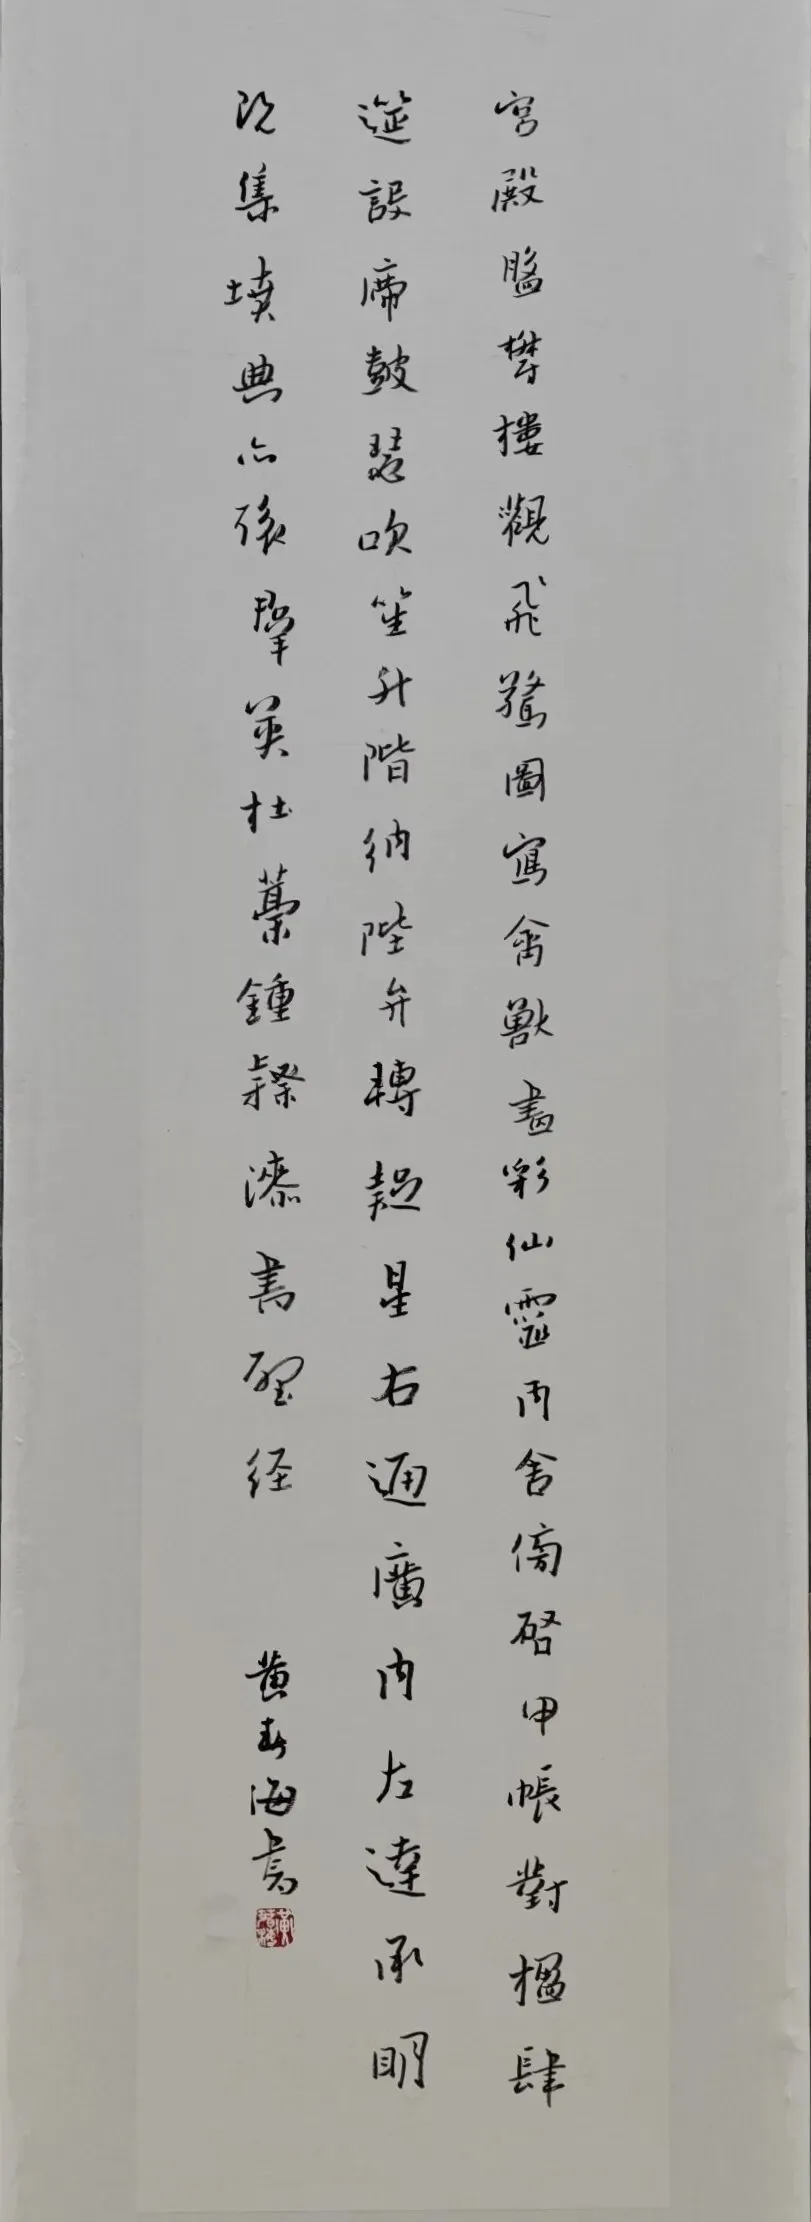 宮殿盤鬱樓觀飛驚圖寫禽獸畫彩仙靈丙舍傍啓甲帳對楹肆
筵設席鼓瑟吹笙升階納陛弁轉疑星右通廣內左達承明
既集墳典亦聚羣英杜藁鍾隸漆書壁经
黄春海書